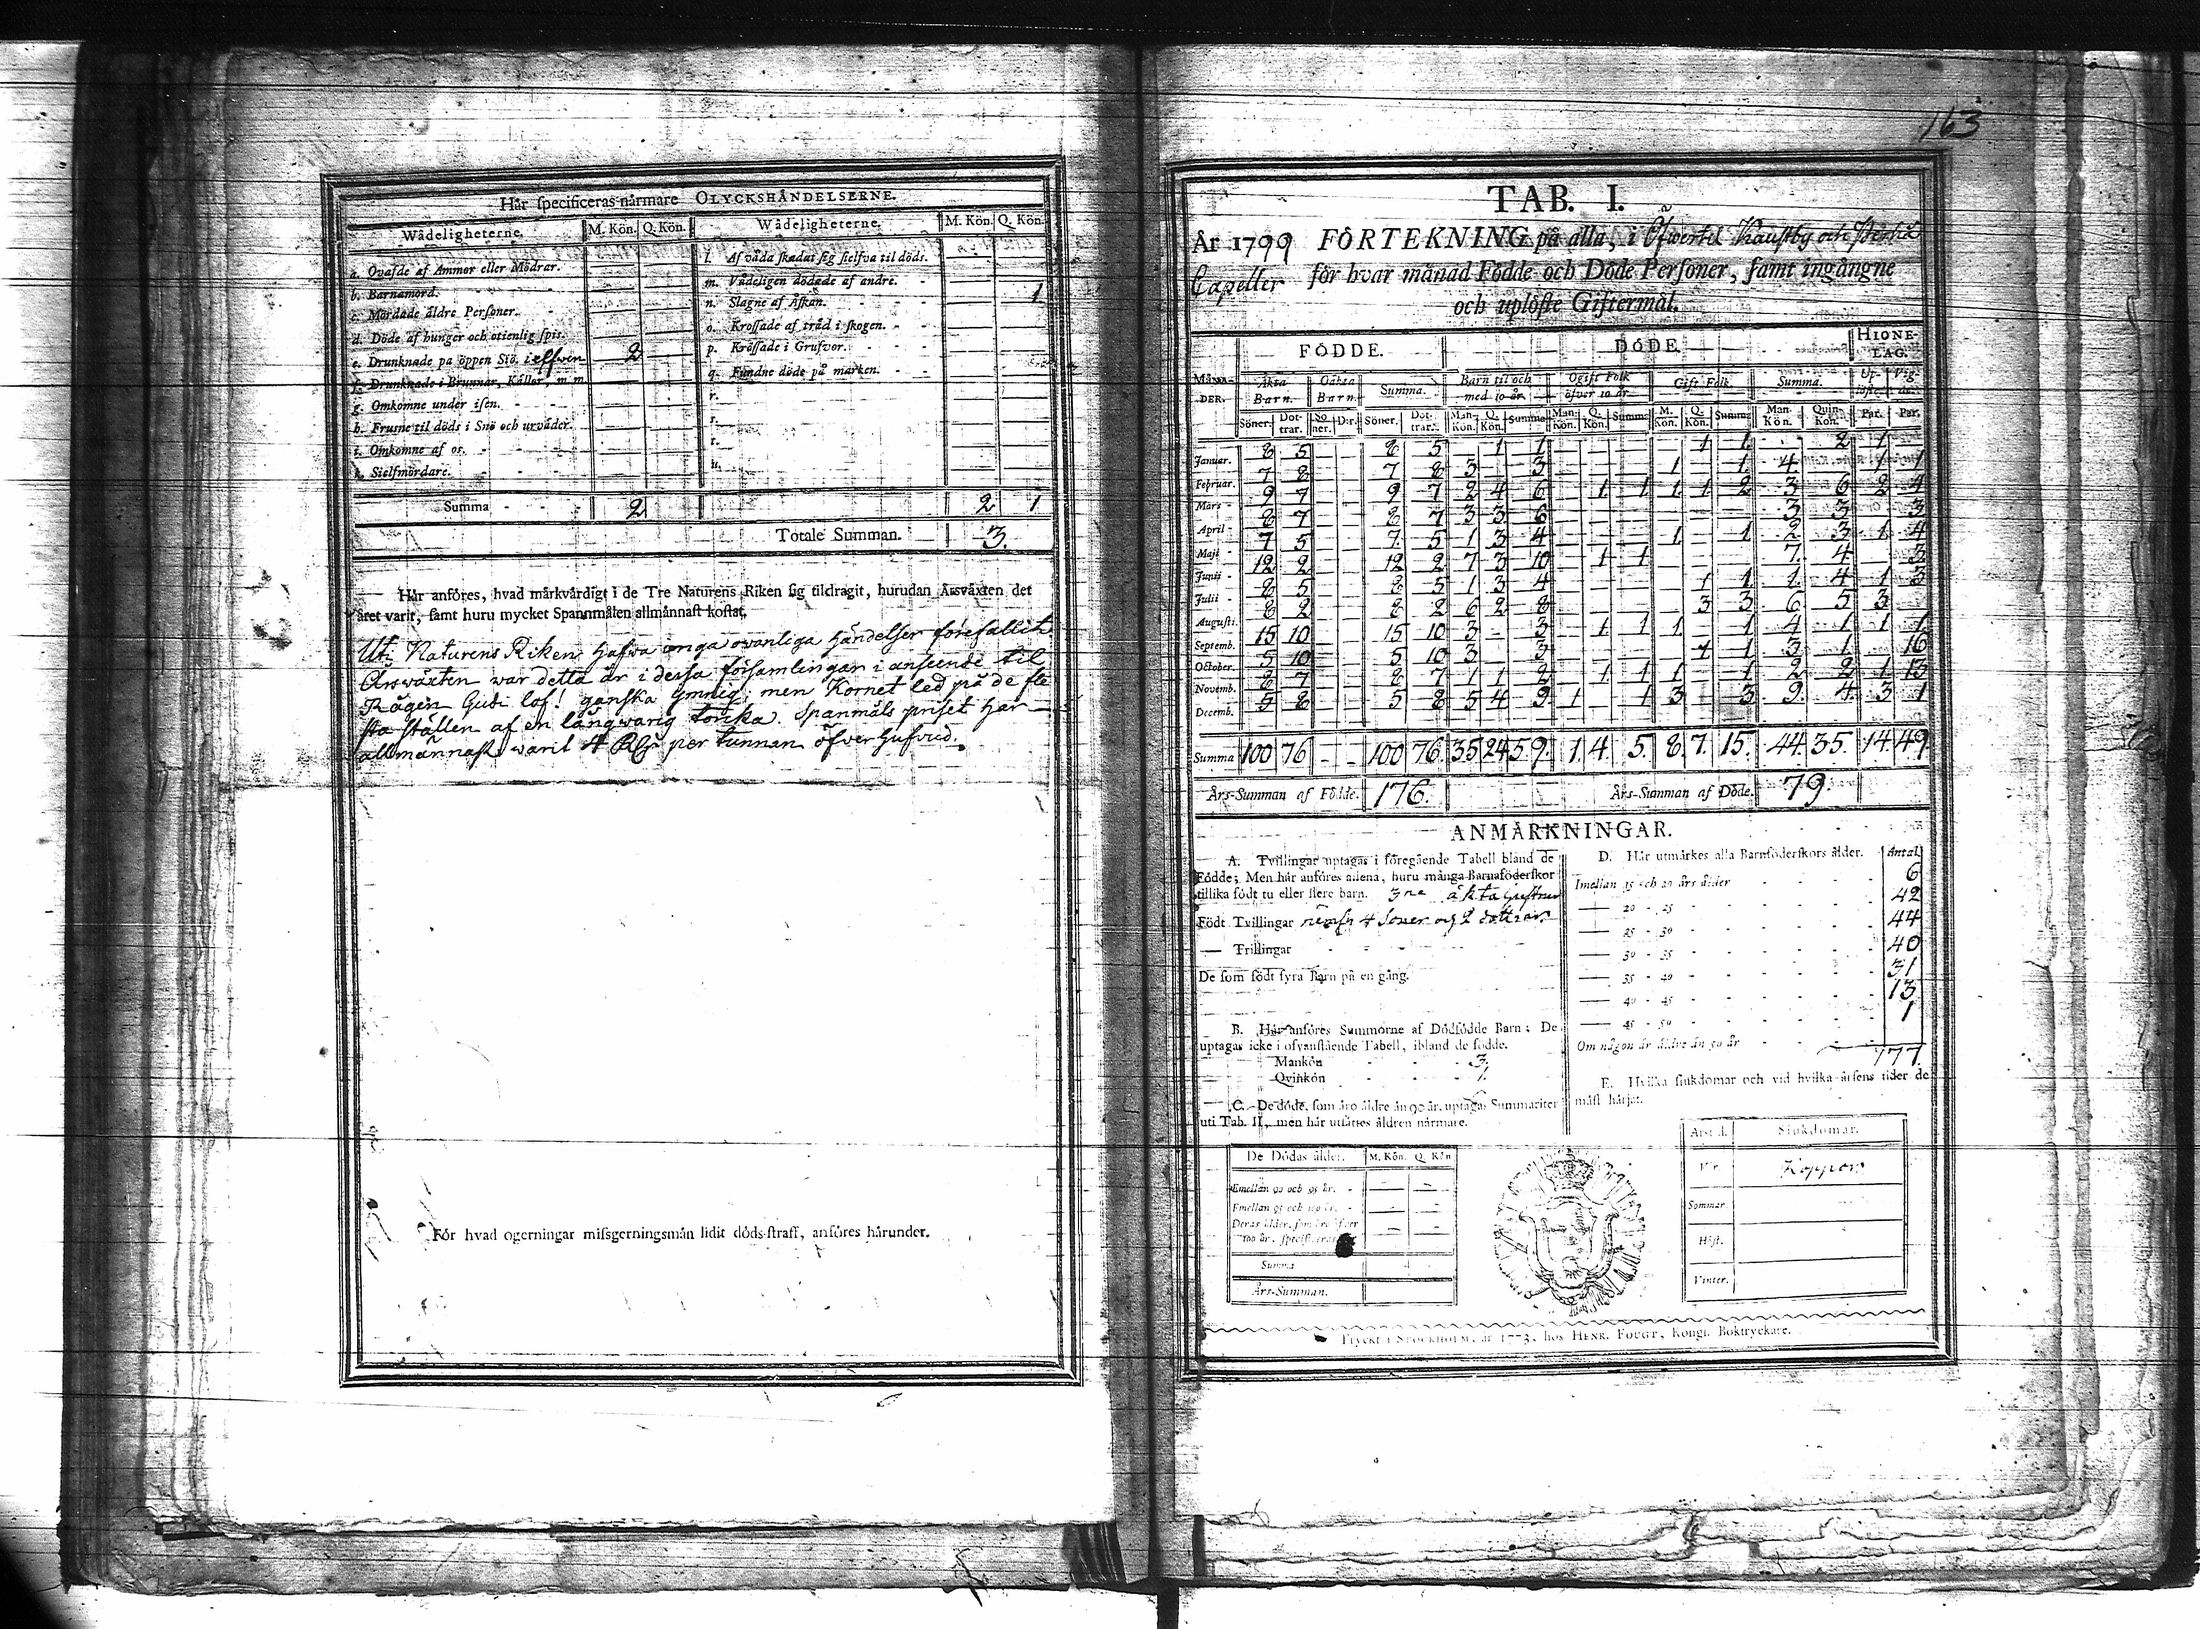 163
Hår specificeras nårmare OLYCKSHÅNDELSERNE.
Wådeligheterne. M. Kön. Q. Kön. Wådeligheterne. M. Kön. Q. Kön.
a. Qvafde af Ammor eller Mödrar.
b. Barnamord.
c. Mördade åldre Personer.
d. Döde af hunger och otienlig spis.
e. Drunknade på öppen Siö. i elfven 2
f. Drunknade i Brunnar, Kållor, m m
g. Omkomne under isen.
h. Frusne til döds i Snö och urvåder.
i. Omkomne af os.
k. Sielfmördare.
l. Af våda skadat sig sielfva til döds.
m. Vådeligen dödade af andre.
n. Slagne af Åskan. 1
o. Krossade af tråd i skogen.
p. Krossade i Grufvor.
q. Fundne döde på marken.
r.
s.
t.
u.
Summa 2 2 1
Totale Summan. 3.
Hår anföres, hvad mårkvårdigt i de Tre Naturens Riken sig tildragit, hurudan Årsvåxten det
året varit, samt huru mycket Spannmålen allmånnast kostat.
Uti Naturens Riken hafva inga ovanliga händelser förefallit.
Årsväxten war detta år i dessa församlingar i anseende til
Rågen Gudi lof! ganska ymnig; men Kornet led på de fle
sta ställen af en långwarig torka. Spanmåls priset har
allmännast warit 4 per tunnan öfver hufvud.
För hvad ogerningar missgerningsmån lidit döds-straff, anföres hårunder.
TAB. I.
År 1799 FÖRTEKNING på alla, i Öfwertil Kaustby och
Capeller för hvar månad Födde och Döde Personer, samt ingångne
och uplöste Giftermål.
FÖDDE. DÖDE. HIONE-LAG.
MÅNA-DER. Åkta Barn. Oåkta Barn. Summa. Barn til och med 10 år. Ogift Folk öfver 10 år. Gift Folk. Summa. Up-löste. Vig-de.
Söner. Dot-trar. So-ner. D:r. Söner. Dot-trar. Man-Kön. Q. Kön. Summa Man-Kön. Q. Kön. Summa M. Kön. Q. Kön. Summa Man-Kön. Quin-Kön. Par. Par.
Januar. 8 5 8 5 1 1 1 1 2 1
Februar. 7 8 7 8 3 3 1 1 4 1 1
Mars 9 7 9 7 2 4 6 1 1 1 1 2 3 6 2 4
April 8 7 8 7 3 3 6 3 3 3
Maji 7 5 7 5 1 3 4 1 1 2 3 1 4
Junii 12 2 12 2 7 3 10 1 1 7 4 3
Julii 8 5 8 5 1 3 4 1 1 1 4 1 3
Augusti. 8 2 8 2 6 2 8 3 3 6 5 3
Septemb. 15 10 15 10 3 3 1 1 1 1 4 1 1 1
Octobr. 5 10 5 10 3 3 1 1 3 1 16
Novemb. 8 7 8 7 1 1 2 1 1 1 1 2 2 1 13
Decemb. 5 8 5 8 5 4 9 1 1 3 3 9 4 3 1
Summa 100 76 100 76 35 24 59. 1. 4. 5. 8. 7. 15. 44. 35. 14. 49
Års-Summan af Födde. 176. Års-Summan af Döde. 79.
ANMÅRKNINGAR.
A. Tvillingar uptagas i föregående Tabell bland de
Födde; Men hår anföres allena, huru många Barnaföderskor
tillika födt tu eller flere barn. 3ne äkta
Födt Tvillingar 4 Söner og 2 döttrar.
Trillingar
De som födt fyra Barn på en gång.
B. Hår anföres Summorne af Dödfödde Barn: De
uptagas icke i ofvanstående Tabell, ibland de födde.
Mankön 3.
Qvinkön 1.
C. De döde, som åro åldre ån 90 år, uptagas Summariter
uti Tab. II, men hår utsåttes åldren nårmare.
De Dödas ålder. M. Kön. Q. Kön
Emellan 90 och 95 år.
Emellan 95 och 100 år.
Deras ålder, som åro öfver
100 år, specificeras
Summa
Års-Summan.
D. Hår utmårkes alla Barnföderskors ålder. Antal
Imellan 15 och 20 års ålder 6
20 - 25 42
25 - 30 44
30 - 35 40
35 - 40 31
40 - 45 13
45 - 50 1
Om någon år åldre ån 50 år
177
E. Hvilka siukdomar och vid hvilka årsens tider de
måst hårjat.
Årstid. Siukdomar.
Vår. Koppor
Sommar.
Höst.
Vinter.
Tryckt i STOCKHOLM, år 1773, hos HENR. FOUGT, Kongl. Boktryckare.